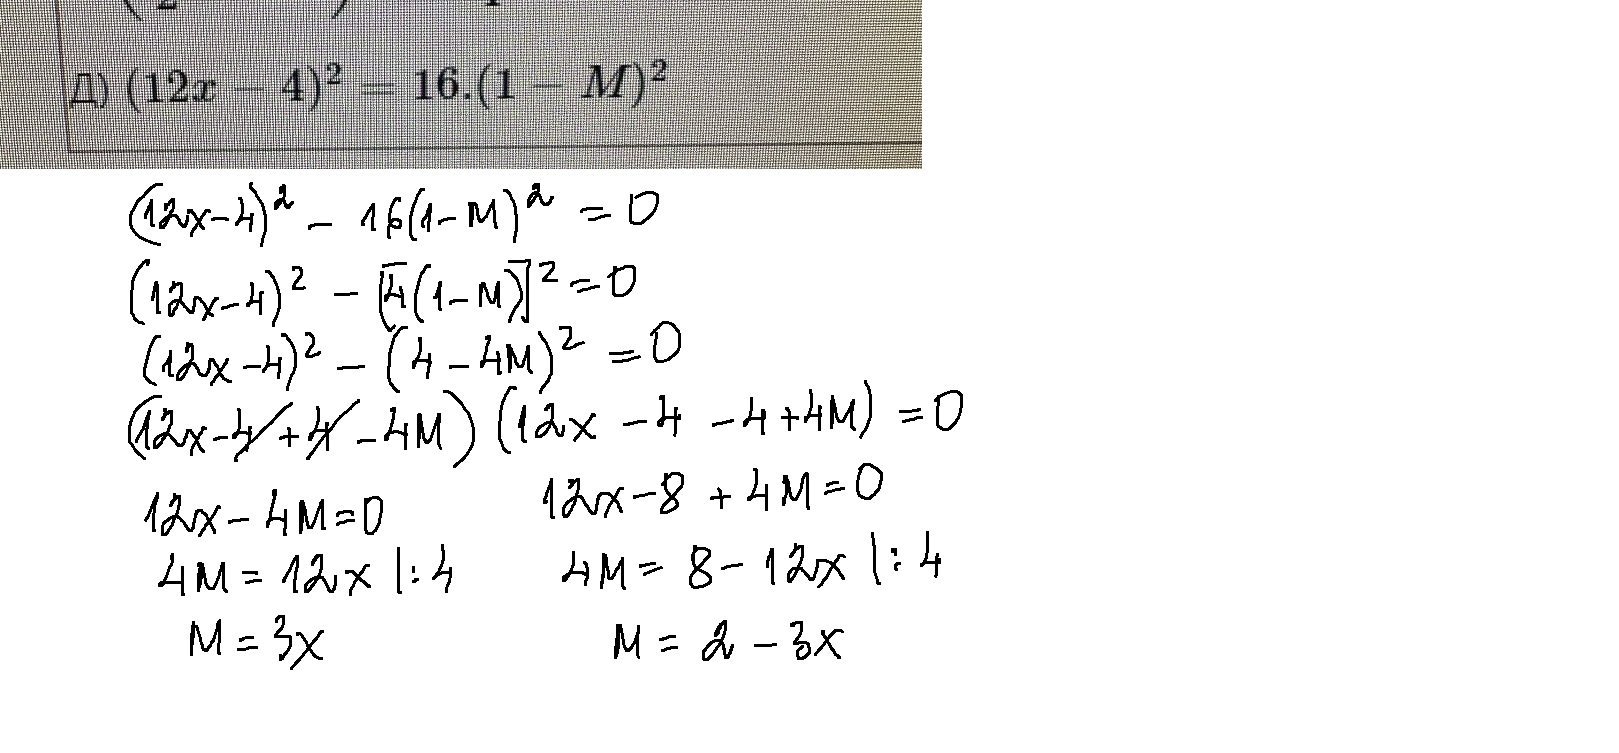 Д) (12x − 4)² = 16.(1 − M)²
(12x-4)² - 16(1-M)² = 0
(12x-4)² - [4(1-M)]² = 0
(12x-4)² - (4-4M)² = 0
(12x-4+4-4M) (12x-4-4+4M) = 0
12x-4M=0 12x-8+4M=0
4M=12x |:4 4M=8-12x |:4
M=3x M=2-3x